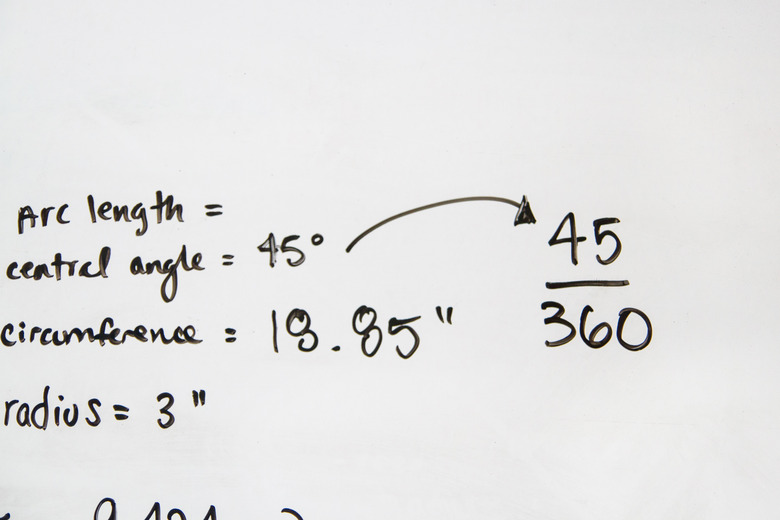 Arc length =
central angle = 45°
45
360
circumference = 18.85"
radius = 3"